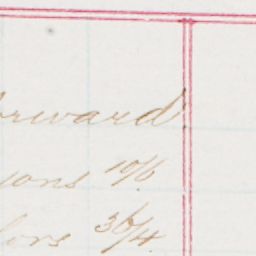 orward
ions 10/6
lors 36/4